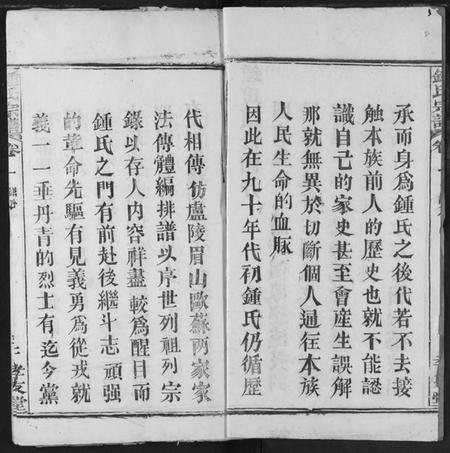 鍾氏宗譜
卷一
承而身爲鍾氏之後代若不去接
觸本族前人的歷史也就不能認
識自己的家史甚至會産生誤解
那就無異於切斷個人通往本族
人民生命的血脉
因此在九十年代初鍾氏仍循歷
代相傳仿盧陵眉山歐蘇两家家
法傳體編排譜以序世列祖列宗
錄以存人内容祥盡較爲醒目而
鍾氏之門有前赴後繼斗志頑强
的革命先驅有見義勇爲從戎就
義一一垂丹青的烈士有迄今黨
鍾氏宗譜
卷一
孝友堂